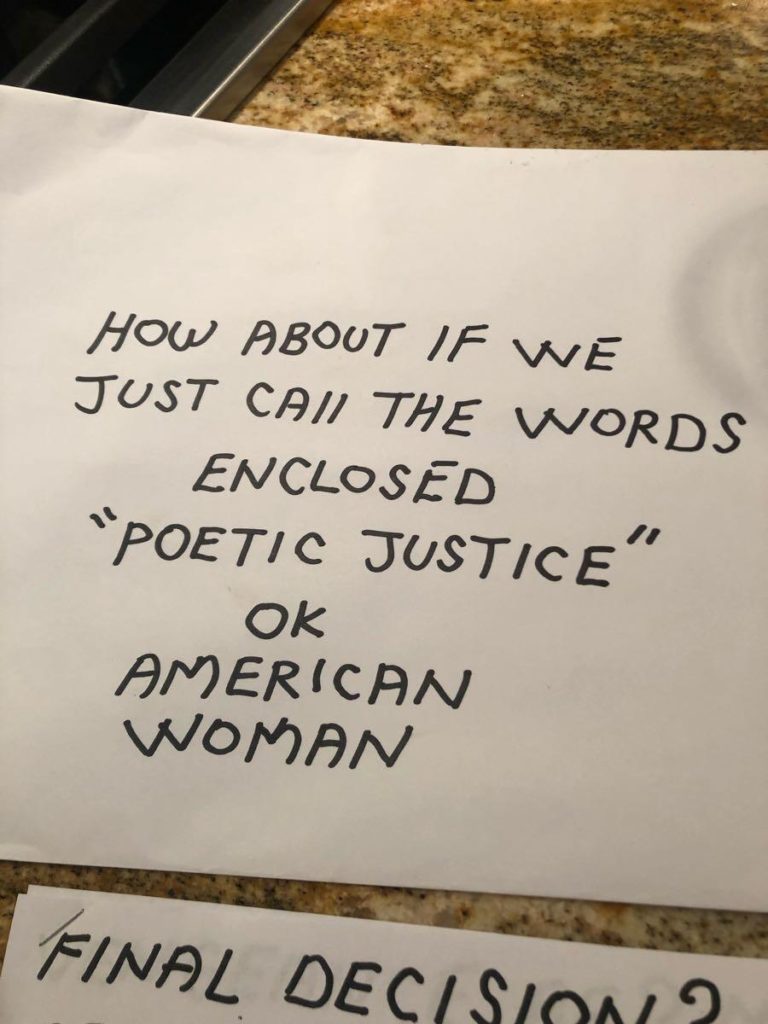 HOW ABOUT IF WE
JUST CAll THE WORDS
ENCLOSED
"POETIC JUSTICE"
OK
AMERICAN
WOMAN
FINAL DECISION?